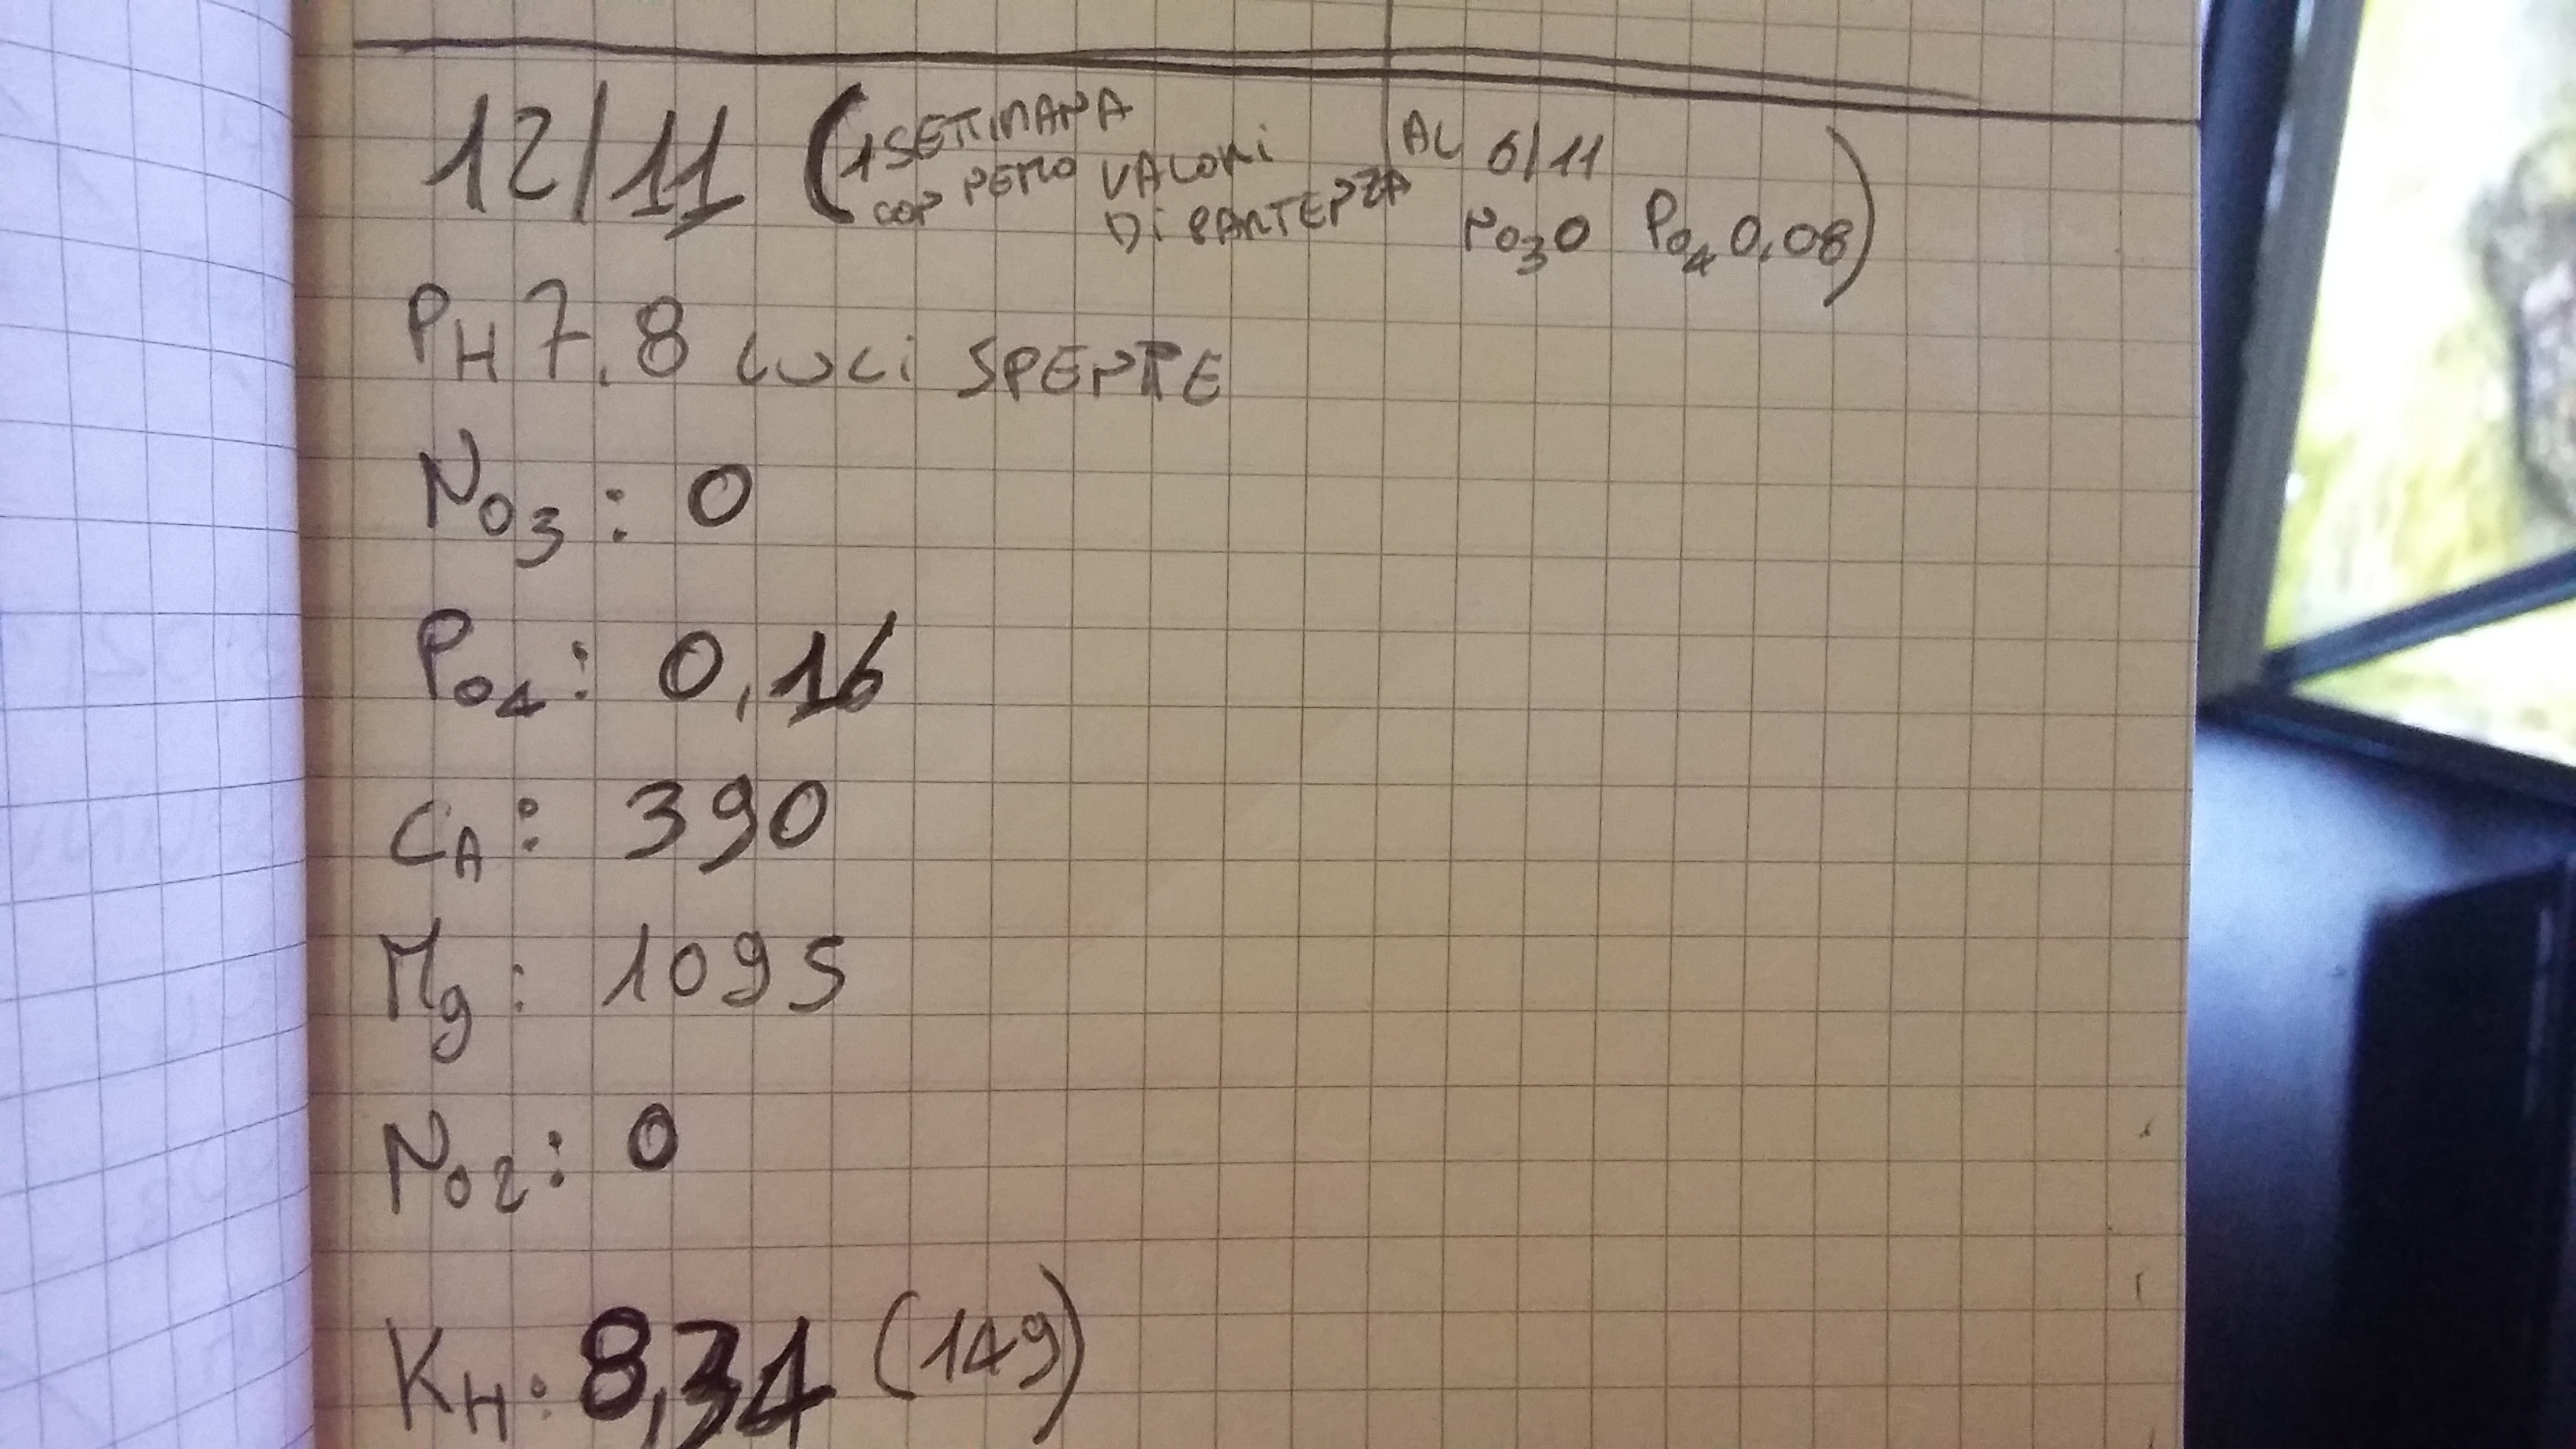 12/11 (1 SETTIMANA CON NEMO VALORI DI PARTENZA AL 6/11 NO3 0 PO4 0,08)
PH 7.8 LUCI SPENTE
NO3: 0
PO4: 0,16
CA: 390
Mg: 1095
NO2: 0
KH: 8,34 (149)